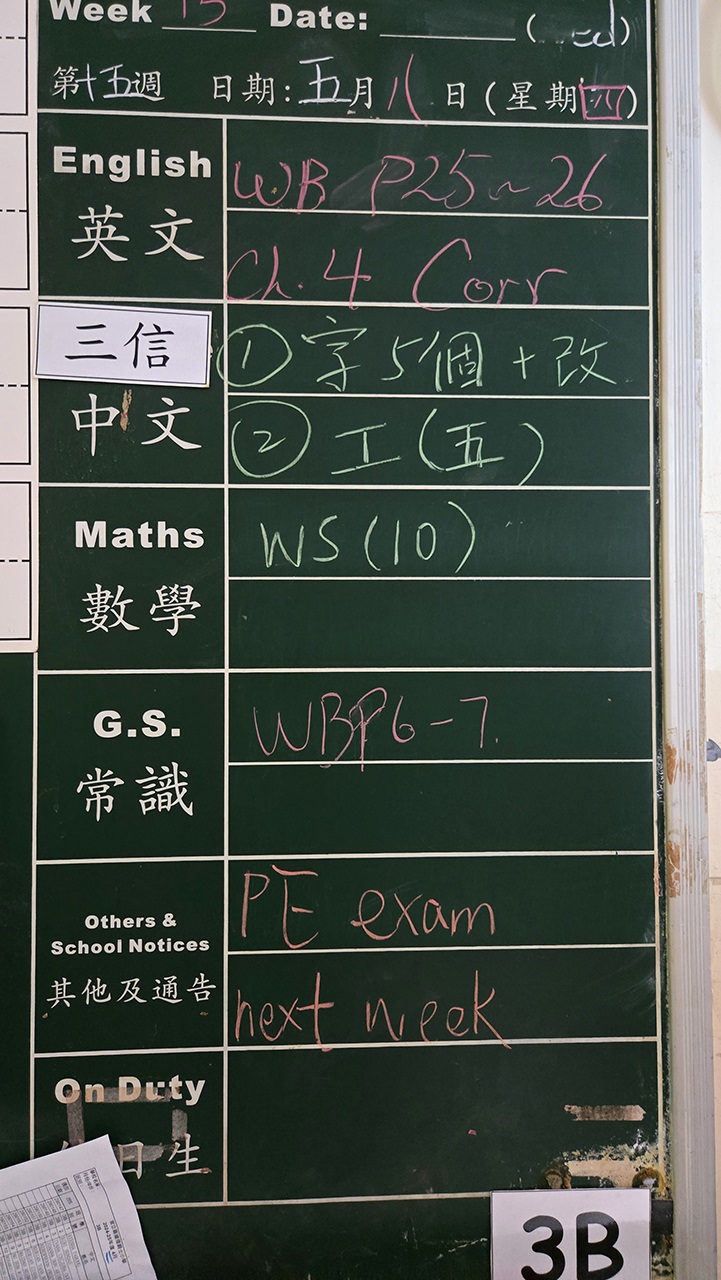 Week 15 Date: ( ed)
第十五週 日期:五月八日(星期四)
English WB P25~26
英文 Ch.4 Corr
三信 ①字5個+改
中文 ②工(五)
Maths WS(10)
數學
G.S. WBP6-7.
常識
Others & PE exam
School Notices
其他及通告 next week
On Duty
日生
3B